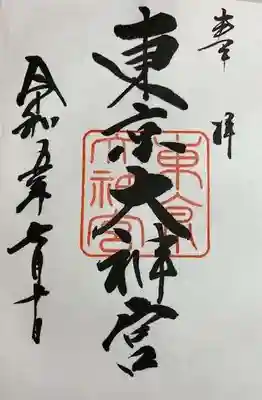 奉拝
東京大神宮
東京大神宮
令和五年七月十日